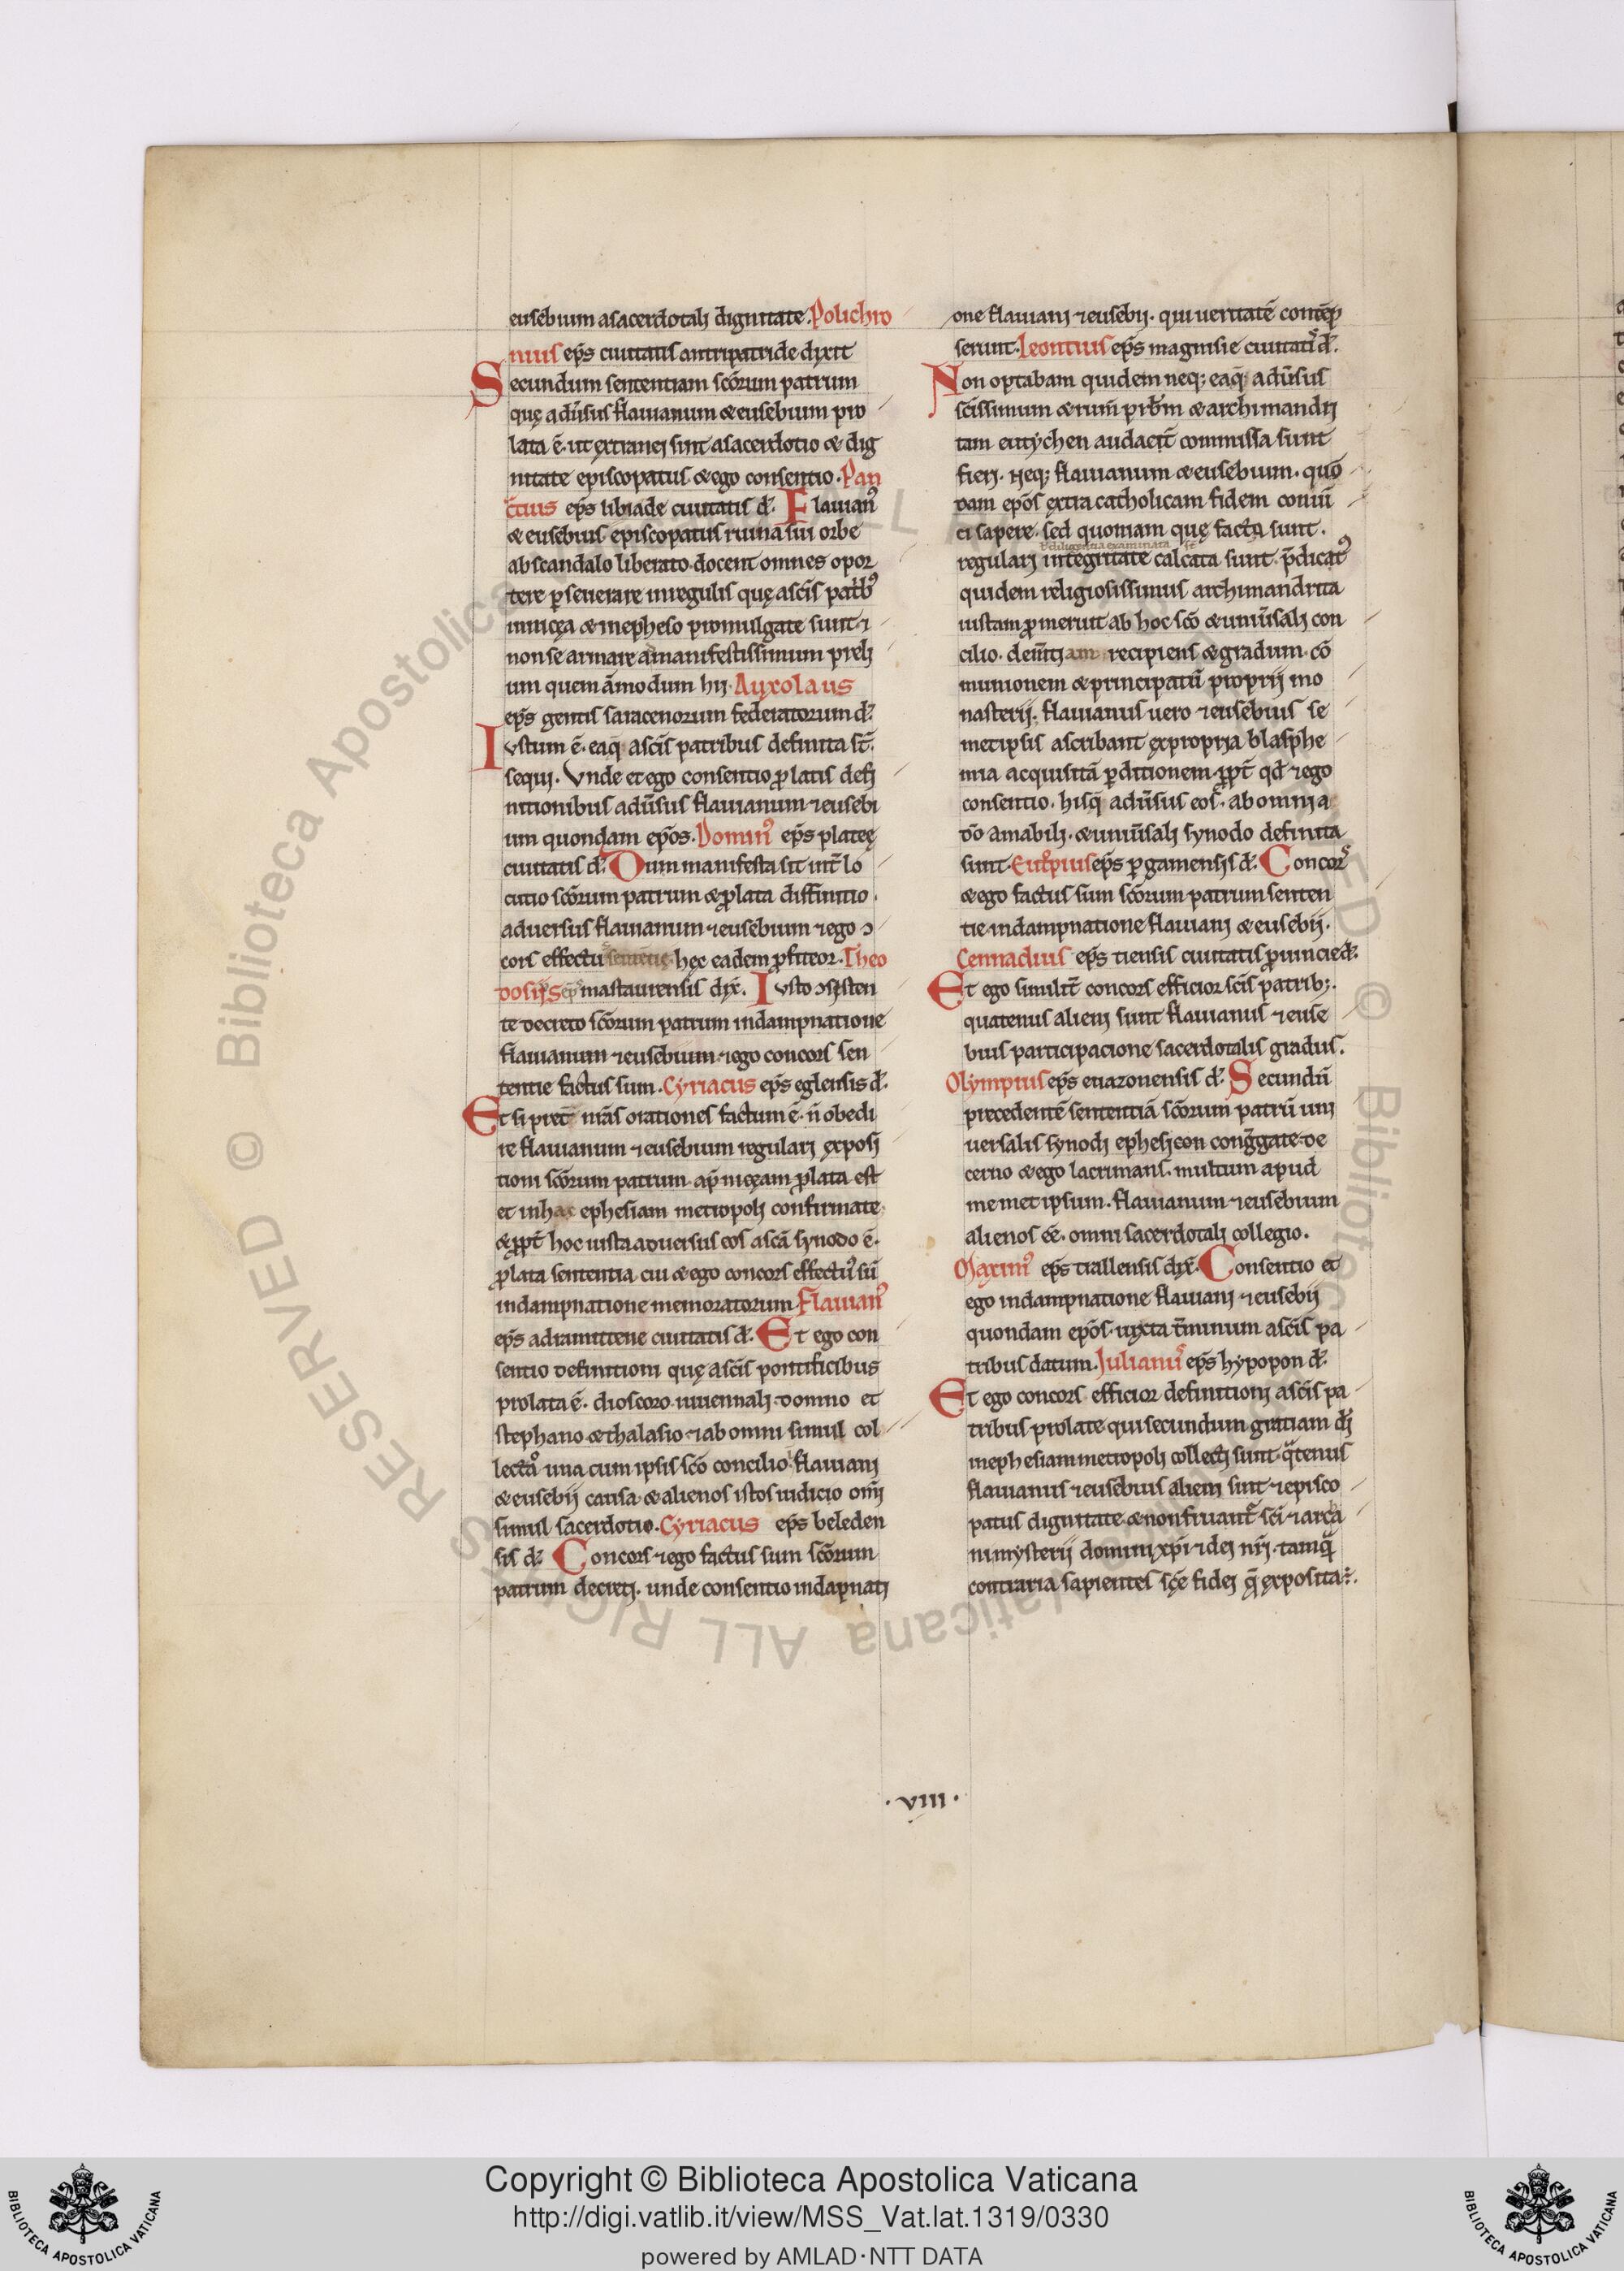 eusebium a sacerdotali dignitate. Polichro
nius ep̄s ciuitatis antripatride dixit
Secundum sententiam sc̄orum patrum
quę adūsus flauianum & eusebium pro
lata ē. ut extranei sint a sacerdotio & dig
nitate episcopatus. & ego consentio. Pan
ep̄s libiade ciuitatis d̄. Flauian᾿
& eusebius episcopatus ruina sui orbe
ab scandalo liberato docent omnes opor
tere ꝑseuerare in regulis quę a sc̄is
in nicęa & in epheso promulgate sunt ⁊
non se armare a manifestissimum preli
um quem āmodum hii. Auxolaus
ep̄s gentis saracenorum federatorum d̄.
Iustum ē. eaq; a sc̄is patribus definita st̄.
sequi. Vnde et ego consentio ꝓlatis defi
nitionibus adūsus flauianum ⁊ eusebi
um quondam ep̄os. Domin᾿ ep̄s plateę
ciuitatis d̄. Dum manifesta sit int̄lo
cutio sc̄orum patrum & ꝓlata diffinitio.
aduersus flauianum ⁊ eusebium ⁊ ego ↄ
cors effectus sentētie hęc eadem ꝓfiteor. Theo
dosius ep̄s mastaurensis dix̄. Iusto ↄsisten
te decreto sc̄orum patrum in dampnatione
flauianum ⁊ eusebium ⁊ ego concors sen
tentie factus sum. Cyriacus ep̄s eglensis d̄.
Et si pret̄ nr̄as orationes factum ē. n̄ obedi
re flauianum ⁊ eusebium regulari exposi
tioni sc̄orum patrum ap̄ nicęam ꝓlata est
et in hac ephesiam metropoli confirmate.
& ꝓpt̄ hoc iusta aduersus eos a sc̄a synodo ē.
ꝓlata sententia. cui & ego concors effect᾿ sū
in dampnatione memoratorum. Flauian᾿
ep̄s adramittene ciuitatis d̄. Et ego con
sentio definitioni quę a sc̄is pontificibus
prolata ē. dioscoro. iuuennali. domno et
stephano & thalasio. ⁊ ab omni simul col
lecto una cum ipsis sc̄o concilio. flauiani
& eusebii causa. & alienos istos iudicio om̄i
simul sacerdotio. Cyriacus ep̄s beleden
sis d̄. Concors ⁊ ego factus sum sc̄orum
patrum decreti. unde consentio in dapnati
one flauiani ⁊ eusebii. qui ueritatē contēp
serunt. Leontius ep̄s magnisie ciuitatis d̄.
Non optabam quidem neq; eaq; adūsus
sc̄issimum & prb̄m & archimandri
tam eutychen audacit̄ commissa sunt
fieri. Neq; flauianum & eusebium. quō
dam ep̄os extra catholicam fidem conui
ci sapere. sed quoniam quę facta sunt.
diligentia examinata st̄
regulari integritate calcata sunt. p̄dicat᾿
quidem religiosissimus archimandrita
iustam ꝓmeruit ab hoc sc̄o & uniūsali con
cilio. recipiens & gradum. cō
munionem & principatū proprii mo
nasterii. flauianus uero ⁊ eusebius se
metipsis ascribant ex propria blasphe
mia acquisitā ꝑditionem. ꝓpt̄ qd̄ ⁊ ego
consentio. hisq; adūsus eos. ab omni a
dō amabili. & uniūsali synodo definita
sunt. ep̄s ꝑgamensis d̄. Concors
& ego factus sum sc̄orum patrum senten
tie in dampnatione flauiani & eusebii.
Gennadius ep̄s tiensis ciuitatis ꝓuincie d̄.
Et ego similit̄ concors efficior sc̄is patrib;.
quatenus alieni sunt flauianus ⁊ euse
bius participacione sacerdotalis gradus.
Olympius ep̄s euazonensis d̄. Secundū
precedentē sententiā sc̄orum patrū uni
uersalis synodi ephesi con conḡgate de
cerno & ego lacrimans. multum apud
memet ipsum. flauianum ⁊ eusebium
alienos ēē. omni sacerdotali collegio.
Maxim᾿ ep̄s trallensis dix̄. Consentio et
ego in dampnatione flauiani ⁊ eusebii
quondam ep̄os. iuxta t̄minum a sc̄is pa
tribus datum. Julianus ep̄s hypopon d̄.
Et ego concors efficior definitioni a sc̄is pa
tribus prolate. qui secundum gratiam di
in ephesiam metropoli collecti sunt. q̄tenus
flauianus ⁊ eusebius alieni sint ⁊ episco
patus dignitate & non fruant᾿ sc̄i ⁊ arca
ni mysterii domini xp̄i ⁊ dei nr̄i. tamq̄
contraria sapientes sc̄ę fidei q̄ exposita.
· VIII ·
© Biblioteca Apostolica Vaticana ALL RIGHTS RESERVED
Copyright © Biblioteca Apostolica Vaticana
http://digi.vatlib.it/view/MSS_Vat.lat.1319/0330
powered by AMLAD·NTT DATA
BIBLIOTECA APOSTOLICA VATICANA
BIBLIOTECA APOSTOLICA VATICANA